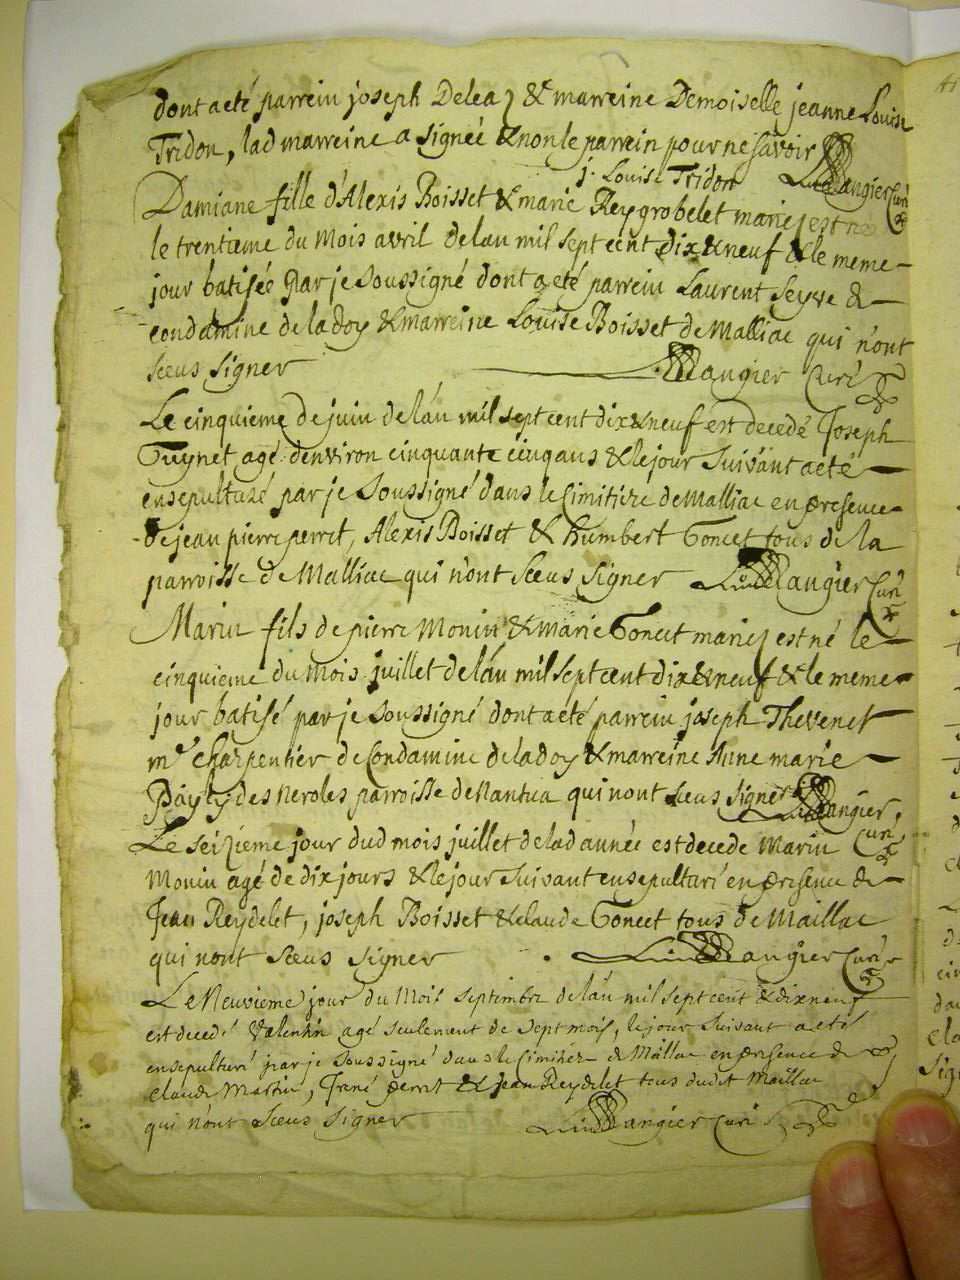 dont a eté parrein joseph Deléaz & marreine Demoiselle jeanne Louise
Tridon, lad marreine a signeé & non le parrein pour ne sçavoir
j. Louise Tridon Langier Curé
Damiane fille d'Alexis Boisset & marie Reygrobelet mariez est neé
le trentieme du Mois avril de lan mil sept cent dix & neuf & le meme
jour batiseé par je soussigné dont a eté parrein Laurent Seyve de
condamine de la doy & marreine Louise Boisset de Malliac qui n'ont
sceus signer Langier Curé
Le cinquieme de juin de lan mil sept cent dix & neuf est decedé Joseph
Guynet agé denviron cinquante cinq ans & le jour suivant a eté
ensepulturé par je soussigné dans le Cimitiere de Malliac en presence
de jean pierre perret, Alexis Boisset & humbert Goncet tous de la
parroisse de Malliac qui n'ont sceus signer Langier Curé
Marin fils de pierre Monin & Marie Goncet mariez est né le
cinquieme du Mois juillet de lan mil sept cent dix & neuf & le meme
jour batisé par je soussigné dont a eté parrein joseph Thevenet
mre charpentier de Condamine de la doy & marreine Anne marie
des Neroles parroisse de Nantua qui nont sceus signer Langier,
Curé
Le seizieme jour dud mois juillet de lad anneé est decede Marin
Monin agé de dix jours & le jour suivant ensepulturé en presence de
Jean Reydelet, joseph Boisset & claude Goncet tous de Maillac
qui nont sceus signer Langier Curé
Le Neuvieme jour du Mois septembre de lan mil sept cent & dix neuf
est decedé Valentin agé seulement de sept mois, le jour suivant a eté
ensepulturé par je soussigné dans le Cimitiere de Maillac en presence de
claude Martin, perret & jean Reydelet tous dudit Maillac
qui n'ont sceus signer Langier Curé